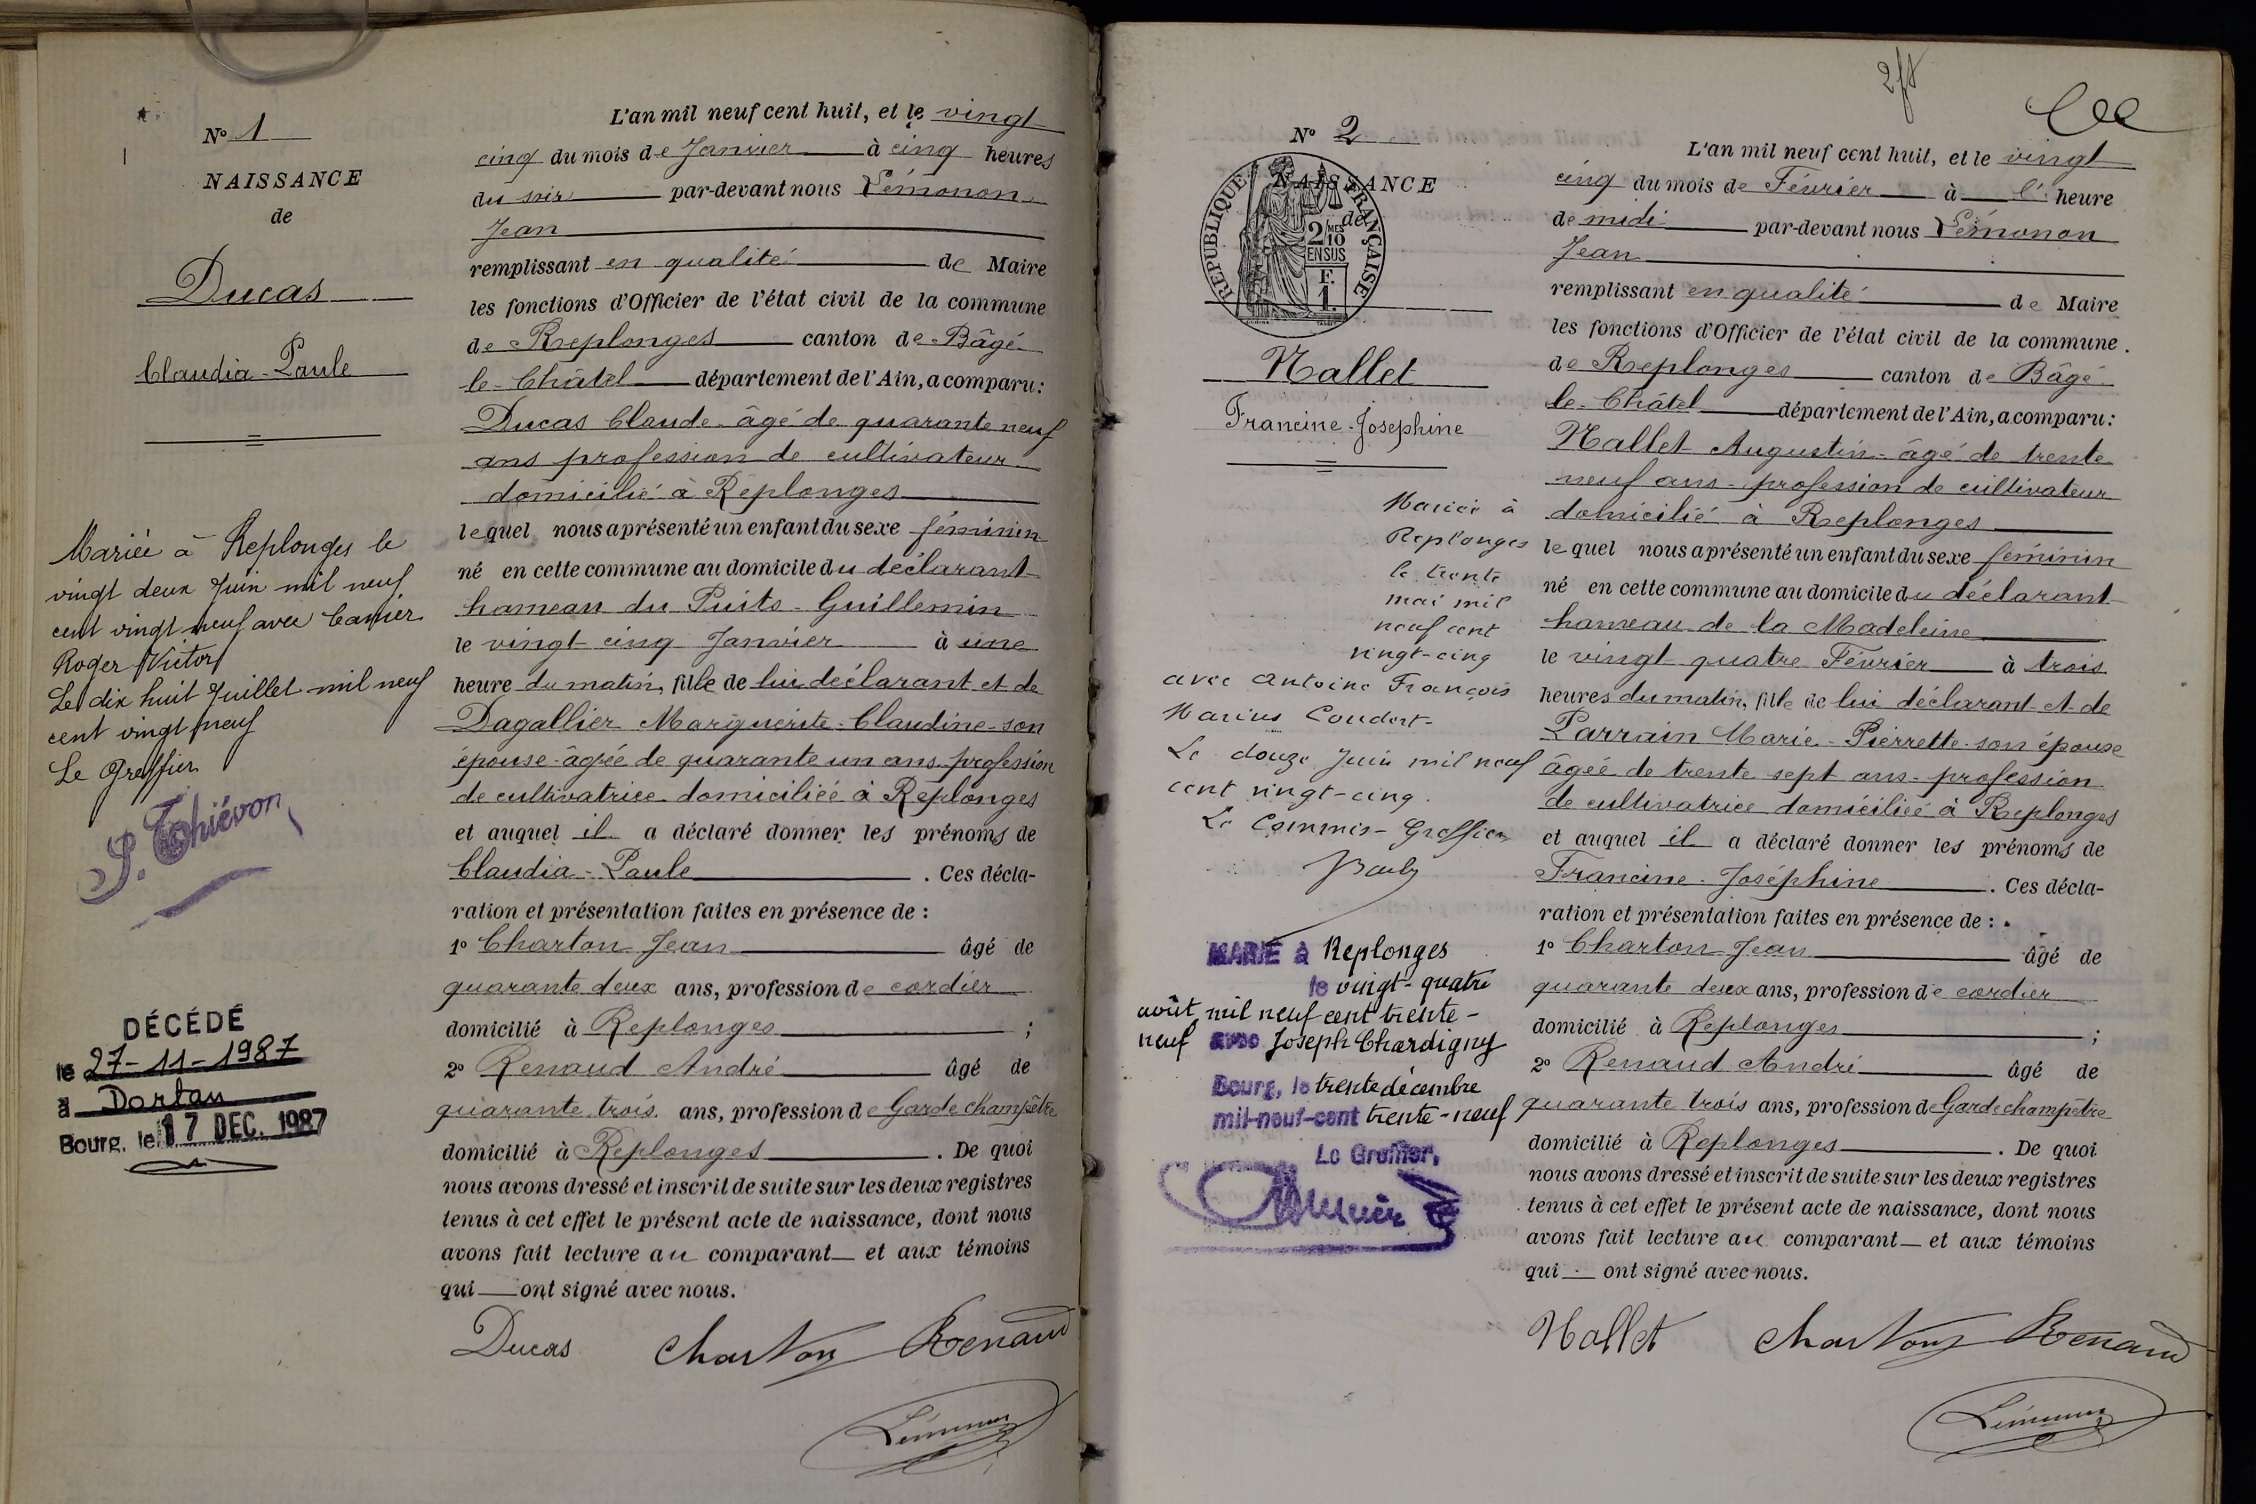 N° 1
NAISSANCE
de
Ducas
Claudia-Paule
Mariée à Replonges le
vingt deux Juin mil neuf
cent vingt neuf avec
Roger Victor
Le dix huit Juillet mil neuf
cent vingt neuf
Le Greffier
S. Thiévon
DÉCÉDÉ
le 27-11-1987
à Dortan
Bourg, le 17 DEC. 1987
L'an mil neuf cent huit, et le vingt
cinq du mois de Janvier à cinq heures
du soir par-devant nous Lémonon
Jean
remplissant en qualité de Maire
les fonctions d'Officier de l'état civil de la commune
de Replonges canton de Bâgé
le-Châtel département de l'Ain, a comparu:
Ducas Claude âgé de quarante neuf
ans profession de cultivateur
domicilié à Replonges
lequel nous a présenté un enfant du sexe féminin
né en cette commune au domicile du déclarant
hameau du Puits-Guillemin
le vingt cinq Janvier à une
heure du matin, fille de lui déclarant et de
Dagallier Marguerite-Claudine-son
épouse-âgée de quarante un ans profession
de cultivatrice domiciliée à Replonges
et auquel il a déclaré donner les prénoms de
Claudia-Paule. Ces décla-
ration et présentation faites en présence de :
1° Charton Jean âgé de
quarante deux ans, profession de cordier
domicilié à Replonges ;
2° Renaud André âgé de
quarante trois ans, profession de Garde champêtre
domicilié à Replonges. De quoi
nous avons dressé et inscrit de suite sur les deux registres
tenus à cet effet le présent acte de naissance, dont nous
avons fait lecture au comparant et aux témoins
qui ont signé avec nous.
Ducas Charton Renaud
Lémonon
N° 2
NAISSANCE
de
REPUBLIQUE FRANÇAISE
2 MES 10
EN SUS
F.
1.
Mallet
Francine-Josephine
Mariée à
Replonges
le trente
mai mil
neuf cent
vingt-cinq
avec Antoine François
Marius Coudert-
Le douze Juin mil neuf
cent vingt-cinq.
Le Commis-Greffier
MARIÉ à Replonges
le vingt-quatre
août mil neuf cent trente-
neuf avec Joseph Chardigny
Bourg, le trente décembre
mil-neuf-cent trente-neuf
Le Greffier,
L'an mil neuf cent huit, et le vingt
cinq du mois de Février à l' heure
de midi par-devant nous Lémonon
Jean
remplissant en qualité de Maire
les fonctions d'Officier de l'état civil de la commune.
de Replonges canton de Bâgé
le-Châtel département de l'Ain, a comparu:
Mallet Augustin-âgé de trente
neuf ans-profession de cultivateur
domicilié à Replonges
lequel nous a présenté un enfant du sexe féminin
né en cette commune au domicile du déclarant
hameau de la Madeleine
le vingt quatre Février à trois
heures du matin, fille de lui déclarant et de
Parrain Marie-Pierrette-son épouse
âgée de trente sept ans-profession
de cultivatrice domiciliée à Replonges
et auquel il a déclaré donner les prénoms de
Francine-Joséphine. Ces décla-
ration et présentation faites en présence de :
1° Charton Jean âgé de
quarante deux ans, profession de cordier
domicilié à Replonges ;
2° Renaud André âgé de
quarante trois ans, profession de Garde champêtre
domicilié à Replonges. De quoi
nous avons dressé et inscrit de suite sur les deux registres
tenus à cet effet le présent acte de naissance, dont nous
avons fait lecture au comparant et aux témoins
qui ont signé avec nous.
Mallet Charton Renaud
Lémonon